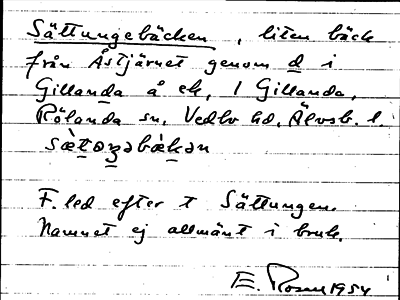 Sättungebäcken, liten bäck
från Åstjärnet genom d i
Gillanda å ek, 1 Gillanda,
Rölanda sn, Vedbo hd, Älvsb. l.
F.led efter t Sättungen.
Namnet ej allmänt i bruk.
E. Rosen 1954